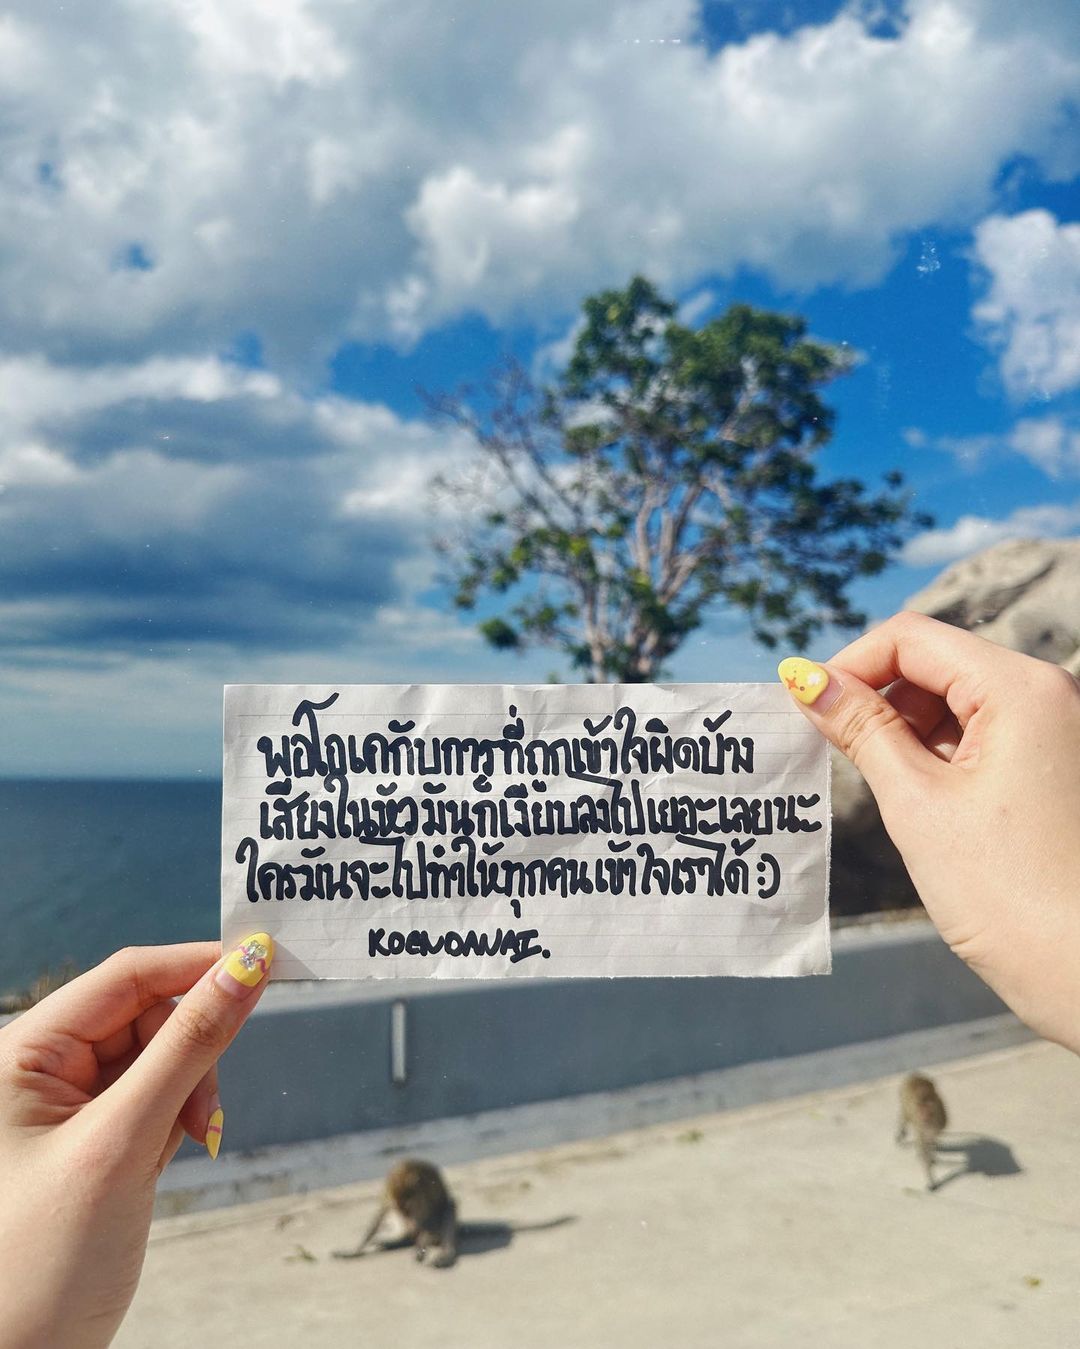 พอโอเคกับการที่ถูกเข้าใจผิดบ้าง
เสียงในหัวมันก็เงียบลงไปเยอะเลยนะ
ใครมันจะไปทำให้ทุกคนเข้าใจเราได้ :)
KOENDANAI.